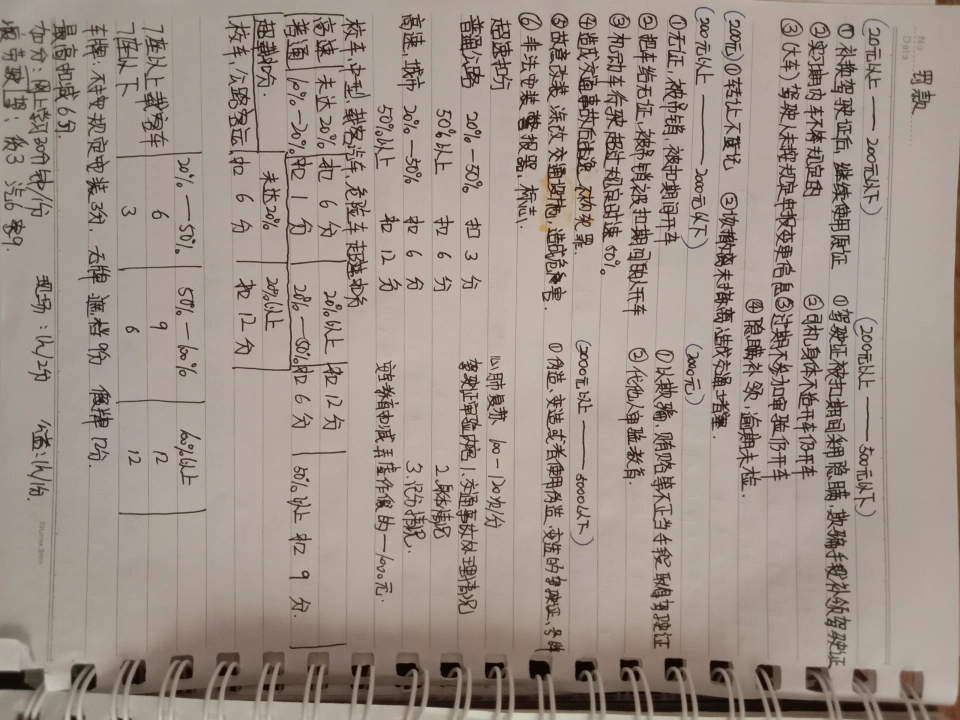 No
Date
罚款
(20元以上——200元以下)
① 补换驾驶证后,继续使用原证
② 实习期内车体规定的
③ (大车)驾驶人未按规定申报变更信息
(200元以上——500元以下)
① 驾驶证被扣期间采用隐瞒,欺骗手段补领驾驶证
② 司机身体不适开车仍开车
③ 过期不参加审验仍开车
④ 隐瞒补领,逾期未检.
(200元) ① 转让不登记 ② 能撤离未撤离,造成交通堵塞.
(200元以上——2000元以下)
① 无证,被吊销,被扣期间开车
② 把车给无证,被吊销被扣期间的人开车
③ 机动车行驶超过规定时速50%
④ 造成交通事故后逃逸,不构犯罪.
⑤ 故意改装,涂改交通设施,造成危害
⑥ 非法安装警报器,标志.
(2000元)
① 以欺骗,贿赂等不正当手段取得驾驶证
② 代他人审验教育.
(2000元以上——5000以下)
① 伪造、变造或者使用伪造、变造的驾驶证,号牌
超速扣分
普通公路 20%—50% 扣 3 分
50%以上 扣 6 分
高速,城市 20%—50% 扣 6 分
50%以上 扣 12 分
心肺复苏 100-120次/分
驾驶证审验内容 1.交通事故处理情况
2.身体情况
3.记分情况.
弄虚作假的—1000元.
校车,中型,载客汽车,危险车超速扣分
高速 未达20% 扣 6 分 20%以上 扣 12 分
普通 10%-20% 扣 1 分 20%—50% 扣 6 分 50%以上 扣 9 分
超载扣分. 未达20% 20%以上
校车,公路客运, 扣 6 分 扣 12 分
20%—50% 50%—100% 100%以上
7座以上载客车 6 9 12
7座以下 3 6 12
车牌:不按规定安装3分. 无牌 遮挡9份 假牌12分.
最高扣减6分.
加分:网上学习30分钟/份 现场:1h/2分 公益:1h/1份.